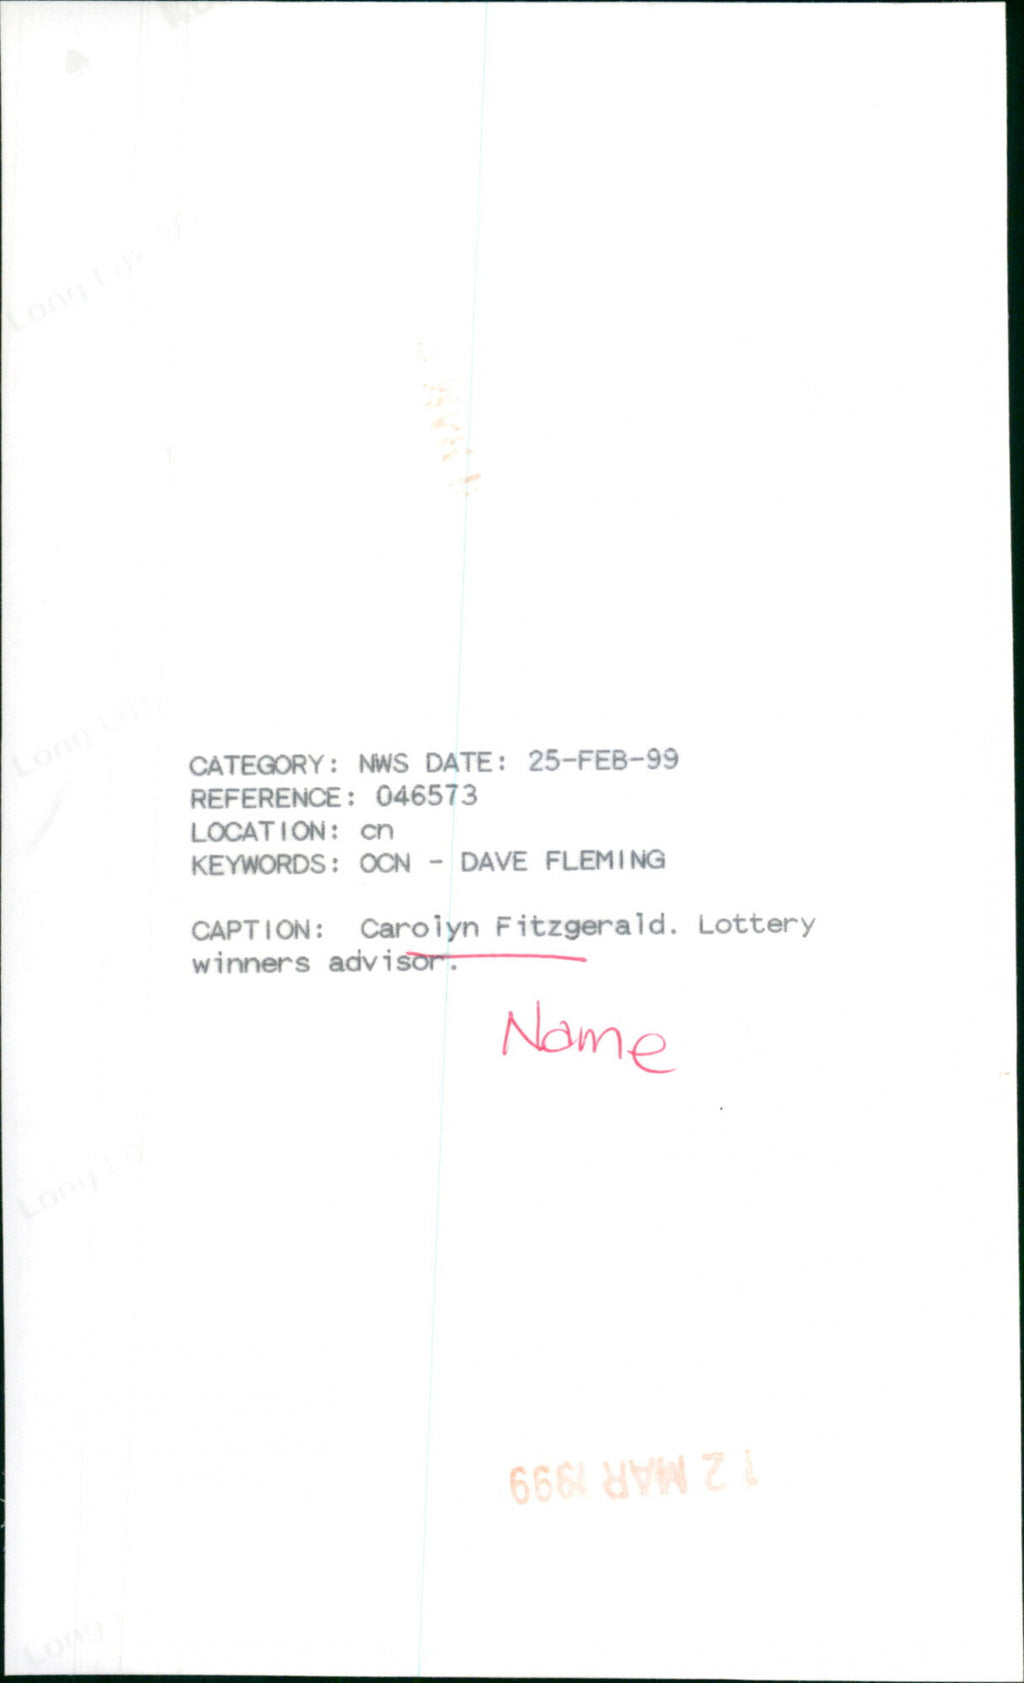 Long Life
Long Life
CATEGORY: NWS DATE: 25-FEB-99
REFERENCE: 046573
LOCATION: cn
KEYWORDS: OCN - DAVE FLEMING
CAPTION: Carolyn Fitzgerald. Lottery
winners advisor.
Name
Long
12 MAR 1999
Long